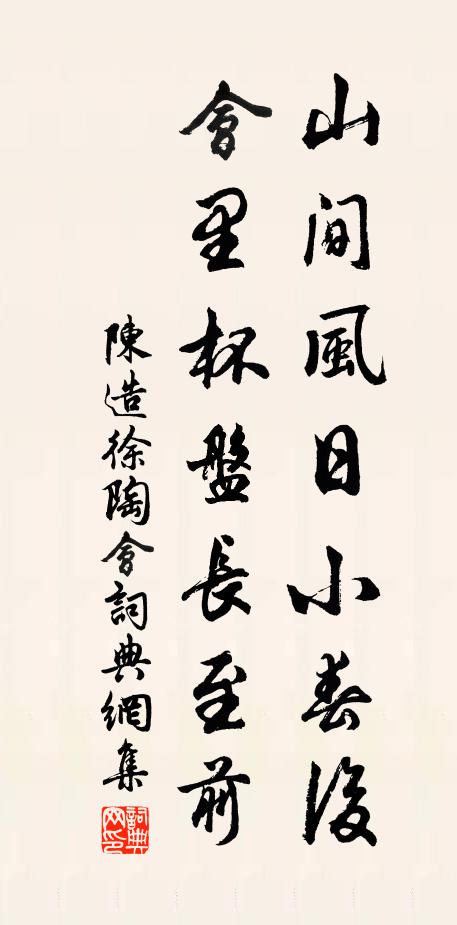 山間風日小春後
會里杯盤長至前
陳造徐陶會詞典網集
詞典網印